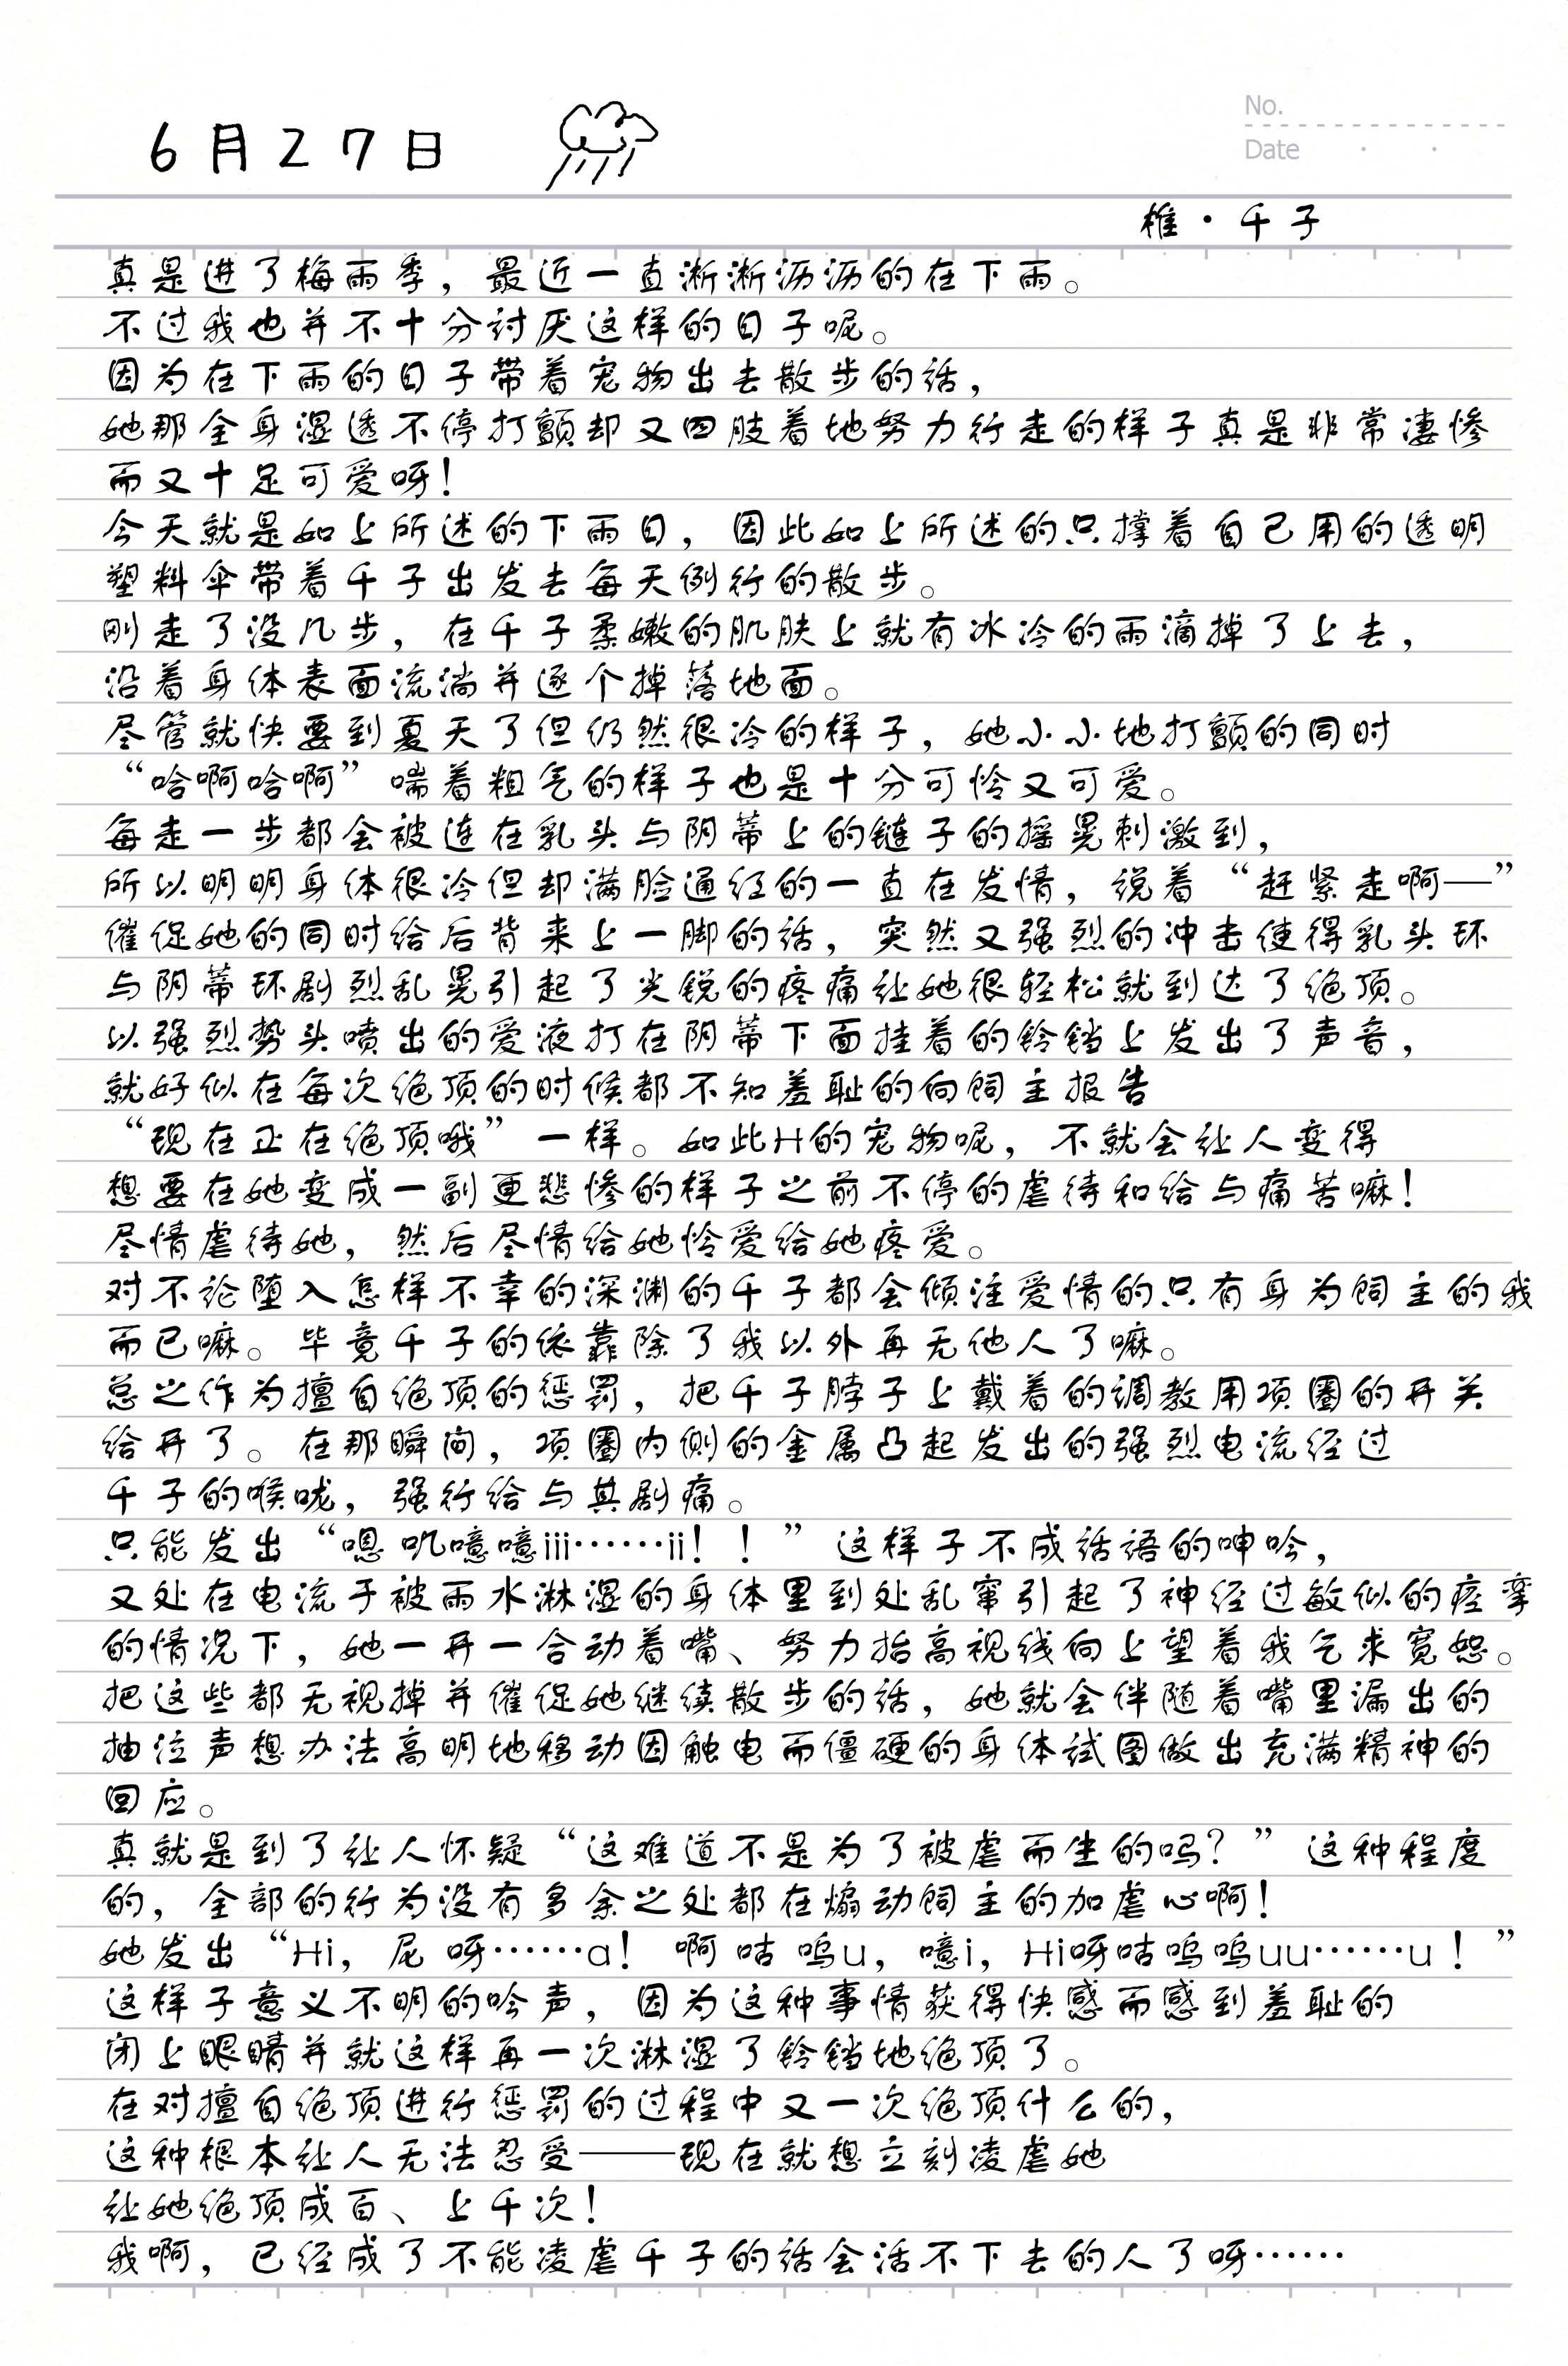 6月27日
No.
Date
椎·千子
真是进了梅雨季，最近一直淅淅沥沥的在下雨。
不过我也并不十分讨厌这样的日子呢。
因为在下雨的日子带着宠物出去散步的话，
她那全身湿透不停打颤却又四肢着地努力行走的样子真是非常凄惨
而又十足可爱呀！
今天就是如上所述的下雨日，因此如上所述的只撑着自己用的透明
塑料伞带着千子出发去每天例行的散步。
刚走了没几步，在千子柔嫩的肌肤上就有冰冷的雨滴掉了上去，
沿着身体表面流淌并逐个掉落地面。
尽管就快要到夏天了但仍然很冷的样子，她小小地打颤的同时
“哈啊哈啊”喘着粗气的样子也是十分可怜又可爱。
每走一步都会被连在乳头与阴蒂上的链子的摇晃刺激到，
所以明明身体很冷但却满脸通红的一直在发情，说着“赶紧走啊—”
催促她的同时给后背来上一脚的话，突然又强烈的冲击使得乳头环
与阴蒂环剧烈乱晃引起了尖锐的疼痛让她很轻松就到达了绝顶。
以强烈势头喷出的爱液打在阴蒂下面挂着的铃铛上发出了声音，
就好似在每次绝顶的时候都不知羞耻的向饲主报告
“现在正在绝顶哦”一样。如此H的宠物呢，不就会让人变得
想要在她变成一副更悲惨的样子之前不停的虐待和给与痛苦嘛！
尽情虐待她，然后尽情给她怜爱给她疼爱。
对不论堕入怎样不幸的深渊的千子都会倾注爱情的只有身为饲主的我
而已嘛。毕竟千子的依靠除了我以外再无他人了嘛。
总之作为擅自绝顶的惩罚，把千子脖子上戴着的调教用项圈的开关
给开了。在那瞬间，项圈内侧的金属凸起发出的强烈电流经过
千子的喉咙，强行给与其剧痛。
只能发出“嗯叽噫噫iii……ii！！”这样子不成话语的呻吟，
又处在电流于被雨水淋湿的身体里到处乱窜引起了神经过敏似的痉挛
的情况下，她一开一合动着嘴、努力抬高视线向上望着我乞求宽恕。
把这些都无视掉并催促她继续散步的话，她就会伴随着嘴里漏出的
抽泣声想办法高明地移动因触电而僵硬的身体试图做出充满精神的
回应。
真就是到了让人怀疑“这难道不是为了被虐而生的吗？”这种程度
的，全部的行为没有多余之处都在煽动饲主的加虐心啊！
她发出“Hi，尼呀……a！啊咕呜u，噫i，Hi呀咕呜呜uu……u！”
这样子意义不明的吟声，因为这种事情获得快感而感到羞耻的
闭上眼睛并就这样再一次淋湿了铃铛地绝顶了。
在对擅自绝顶进行惩罚的过程中又一次绝顶什么的，
这种根本让人无法忍受——现在就想立刻凌虐她
让她绝顶成百、上千次！
我啊，已经成了不能凌虐千子的话会活不下去的人了呀……